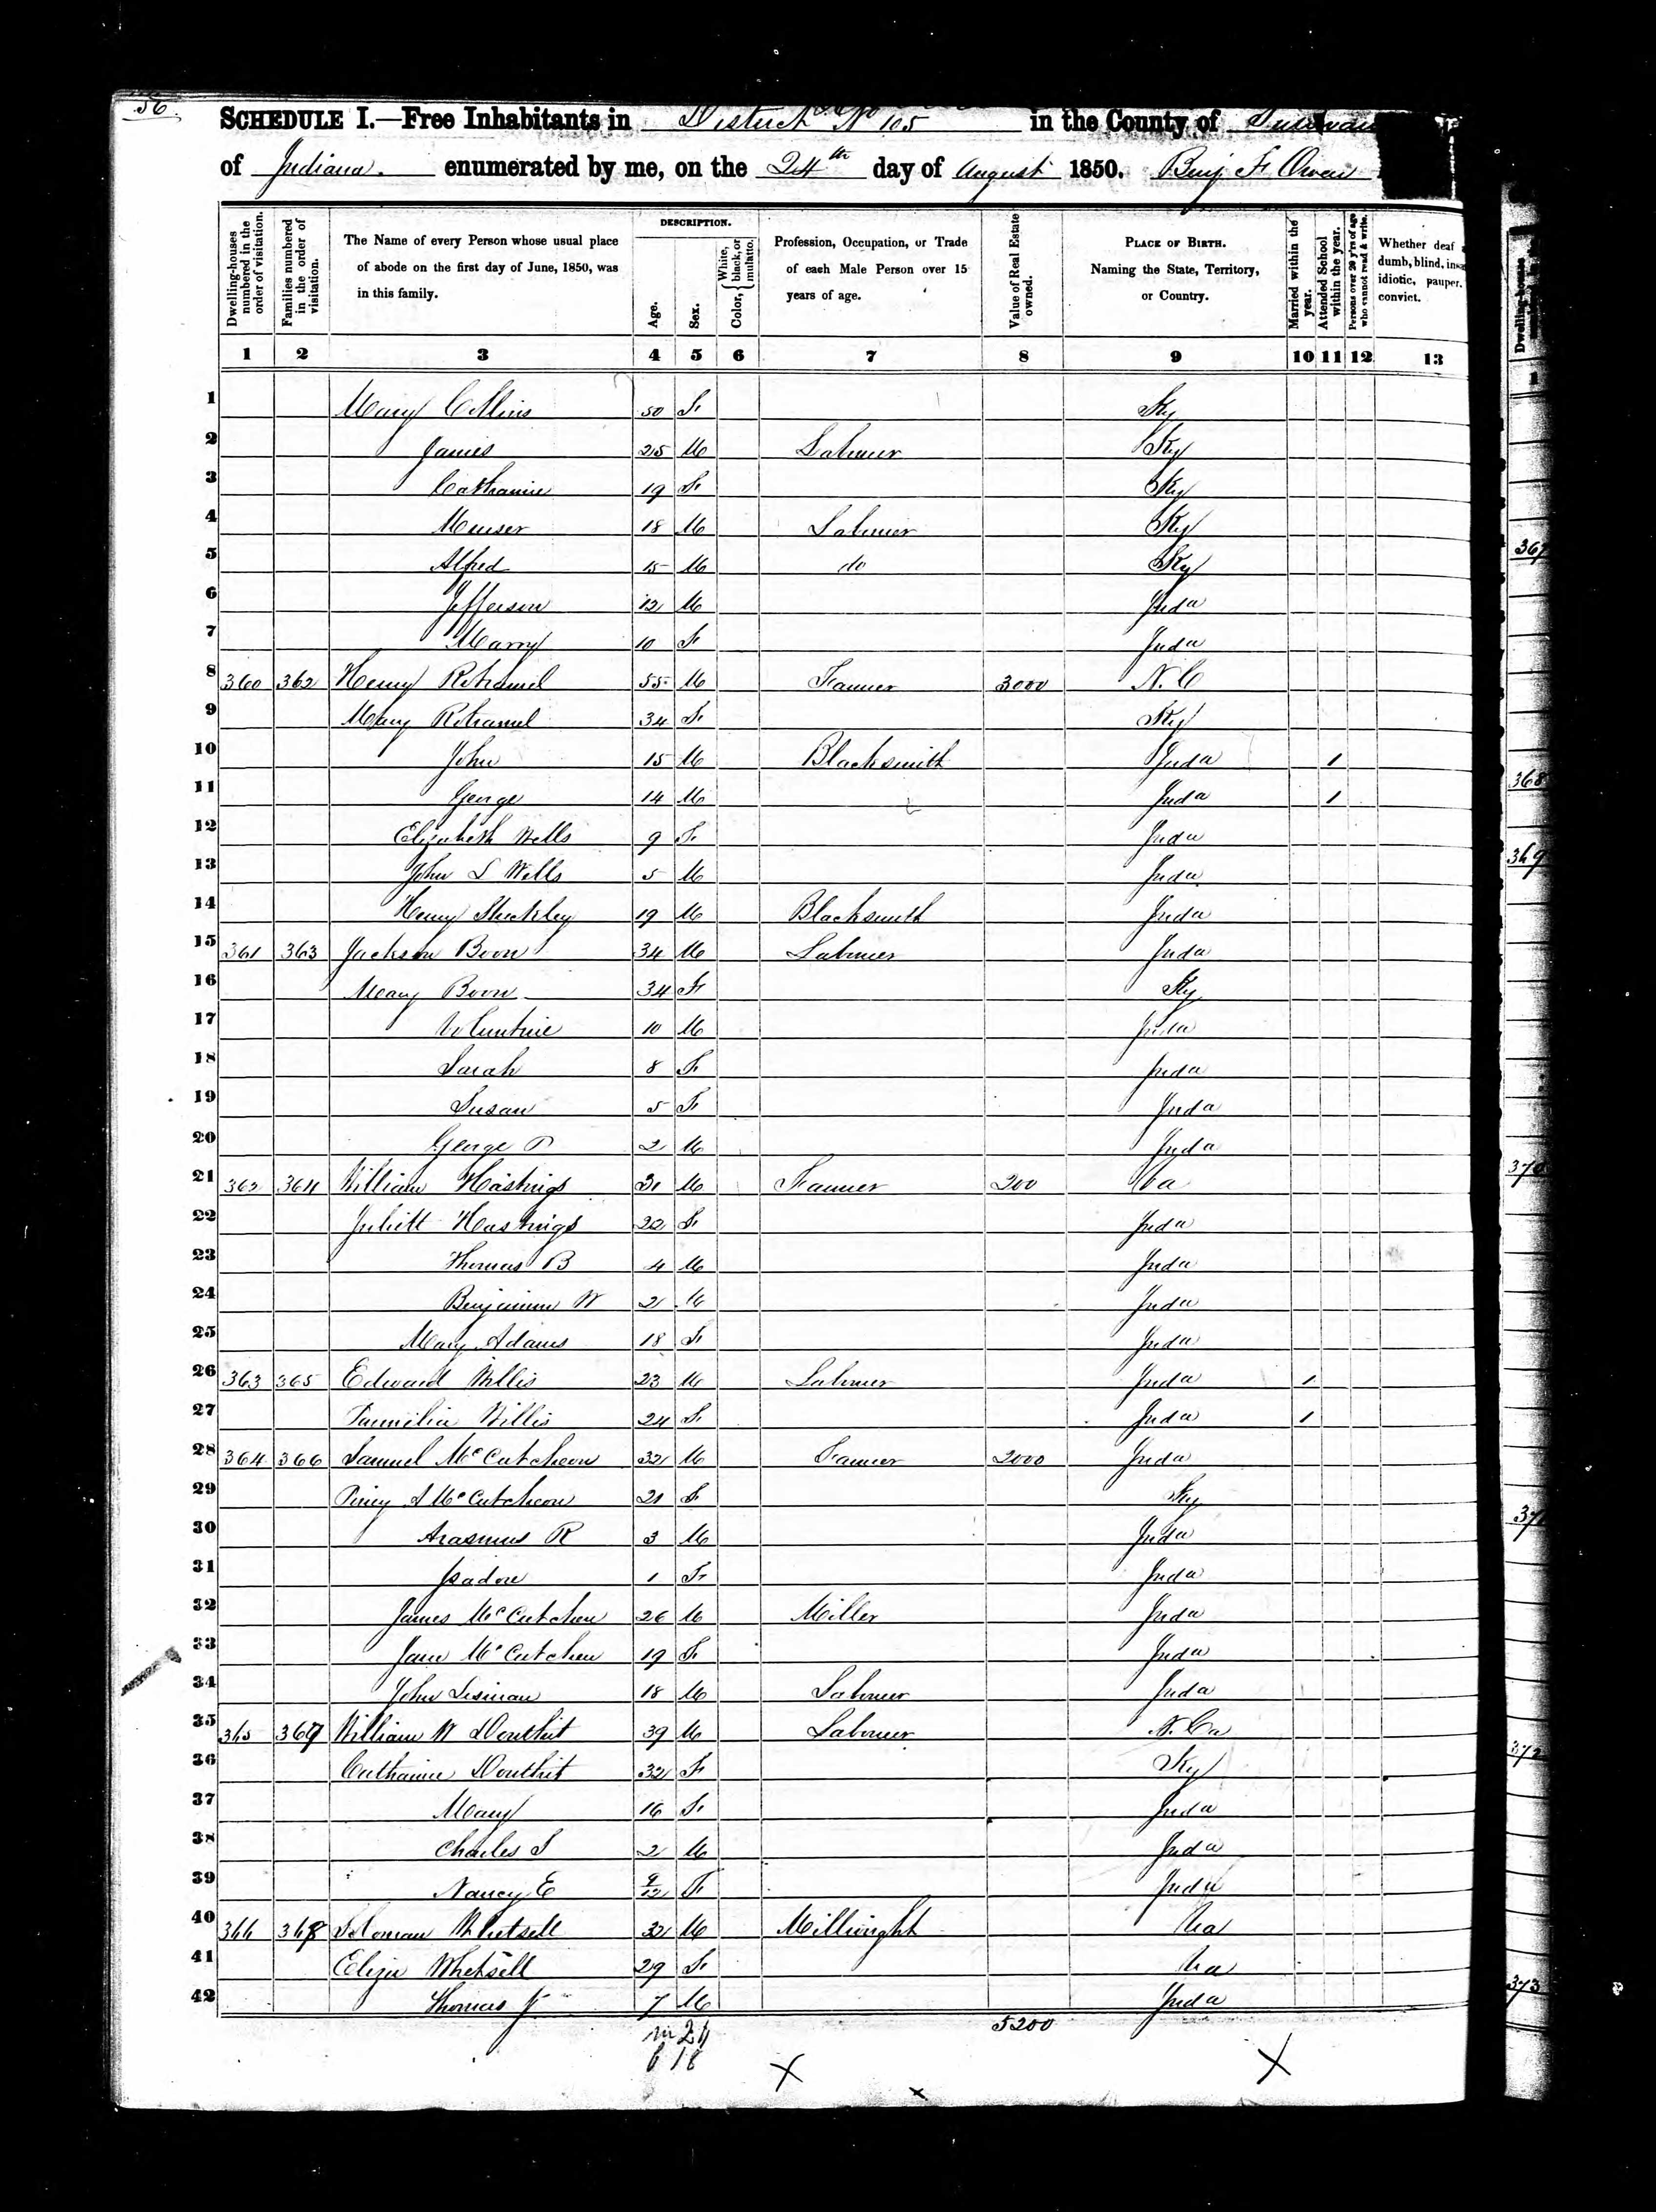 56
SCHEDULE I.—Free Inhabitants in District No 105 in the County of Sullivan
of Indiana. enumerated by me, on the 24th day of August 1850. Benj F Owen
Dwelling-houses numbered in the order of visitation. Families numbered in the order of visitation. The Name of every Person whose usual place of abode on the first day of June, 1850, was in this family. DESCRIPTION. Age. Sex. Color, { White, black, or mulatto. Profession, Occupation, or Trade of each Male Person over 15 years of age. Value of Real Estate owned. PLACE OF BIRTH. Naming the State, Territory, or Country. Married within the year. Attended School within the year. Persons over 20 y'rs of age who cannot read & write. Whether deaf dumb, blind, insa idiotic, pauper, convict.
1 2 3 4 5 6 7 8 9 10 11 12 13
1 Mary Collins 50 F Ky
2 James 25 M Labourer Ky
3 Catharine 19 F Ky
4 18 M Labourer Ky
5 Alfred 15 M do Ky
6 Jefferson 12 M Inda
7 Marry 10 F Inda
8 360 362 Henry Rotramel 55 M Farmer 3000 N. C
9 Mary Rotramel 34 F Ky
10 John 15 M Blacksmith Inda 1
11 George 14 M Inda 1
12 Elizabeth Wells 9 F Inda
13 John S Wells 5 M Inda
14 Henry 19 M Blacksmith Inda
15 361 363 Jackson Boon 34 M Labourer Inda
16 Mary Boon 34 F Ky
17 Voluntine 10 M Inda
18 Sarah 8 F Inda
19 Susan 5 F Inda
20 George P 2 M Inda
21 362 364 William Hastings 31 M Farmer 200 Va
22 Juliett Hastings 22 F Inda
23 Thomas B 4 M Inda
24 Benjamin W 2 M Inda
25 Mary Adams 18 F Inda
26 363 365 Edward Willis 23 M Labourer Inda 1
27 Willis 24 F Inda 1
28 364 366 Samuel McCutcheon 32 M Farmer 2000 Inda
29 Piney A McCutcheon 21 F Ky
30 Arasmus R 3 M Inda
31 Isadore 1 F Inda
32 James McCutchen 26 M Miller Inda
33 Jane McCutchen 19 F Inda
34 John Sisman 18 M Labourer Inda
35 365 367 William W Douthit 39 M Labourer N. Ca
36 Catharine Douthit 32 F Ky
37 Mary 16 F Inda
38 Charles S 2 M Inda
39 Nancy E 9/12 F Inda
40 366 368 Soloman Whetsell 32 M Millwright Va
41 Eliza Whetsell 29 F Va
42 Thomas J 7 M Inda
m 24 5200
f 18
1
367
368
369
370
371
372
373